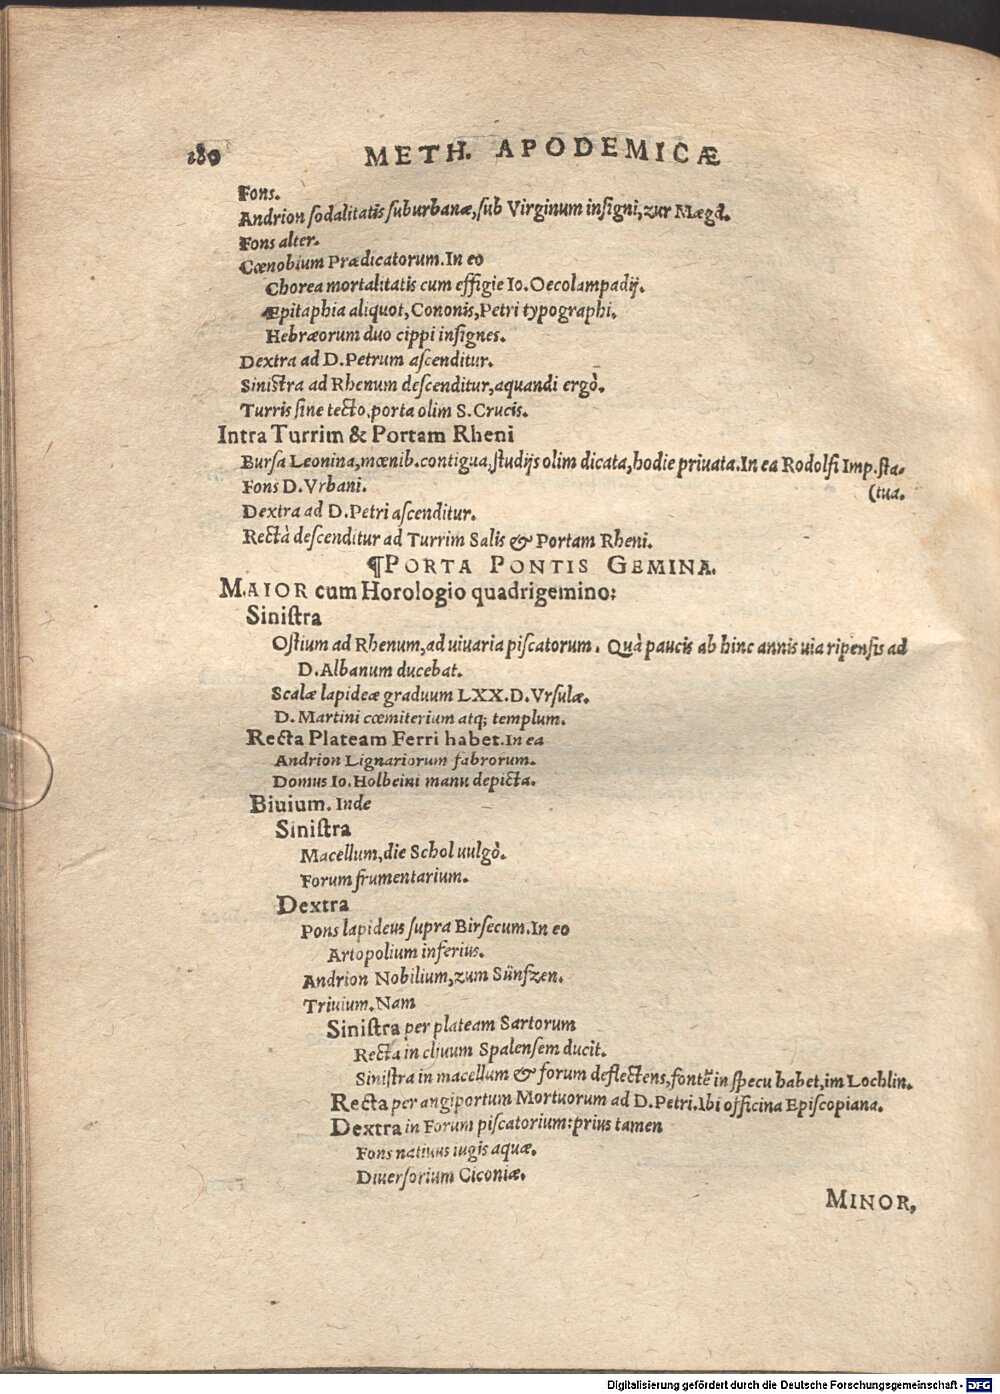 180 METH. APODEMICÆ
Fons.
Andrion sodalitatis suburbanæ, sub Virginum insigni, zur Mægd.
Fons alter.
Cœnobium Prædicatorum. In eo
Chorea mortalitatis cum effigie Io. Oecolampadij.
Epitaphia aliquot, Cononis, Petri typographi.
Hebræorum duo cippi insignes.
Dextra ad D. Petrum ascenditur.
Sinistra ad Rhenum descenditur, aquandi ergò.
Turris sine tecto, porta olim S. Crucis.
Intra Turrim & Portam Rheni
Bursa Leonina, mœnib. contigua, studijs olim dicata, hodie priuata. In ea Rodolfi Imp. sta-
Fons D. Vrbani. (tua.
Dextra ad D. Petri ascenditur.
Rectà descenditur ad Turrim Salis & Portam Rheni.
¶PORTA PONTIS GEMINA.
MAIOR cum Horologio quadrigemino:
Sinistra
Ostium ad Rhenum, ad uiuaria piscatorum. Quà paucis ab hinc annis uia ripensis ad
D. Albanum ducebat.
Scalæ lapideæ graduum LXX. D. Vrsulæ.
D. Martini cœmiterium atq; templum.
Recta Plateam Ferri habet. In ea
Andrion Lignariorum fabrorum.
Domus Io. Holbeini manu depicta.
Biuium. Inde
Sinistra
Macellum, die Schol uulgò.
Forum frumentarium.
Dextra
Pons lapideus supra Birsecum. In eo
Artopolium inferius.
Andrion Nobilium, zum Sünfzen.
Triuium. Nam
Sinistra per plateam Sartorum
Recta in cliuum Spalensem ducit.
Sinistra in macellum & forum deflectens, fontē in specu habet, im Lochlin.
Recta per angiportum Mortuorum ad D. Petri. Ibi officina Episcopiana.
Dextra in Forum piscatorium: prius tamen
Fons natiuus iugis aquæ.
Diuersorium Ciconiæ.
MINOR,
Digitalisierung gefördert durch die Deutsche Forschungsgemeinschaft - DFG